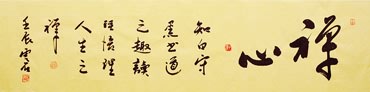 禅心
知白守
黑书道
之趣读
经悟理
人生之
禅
壬辰雪石